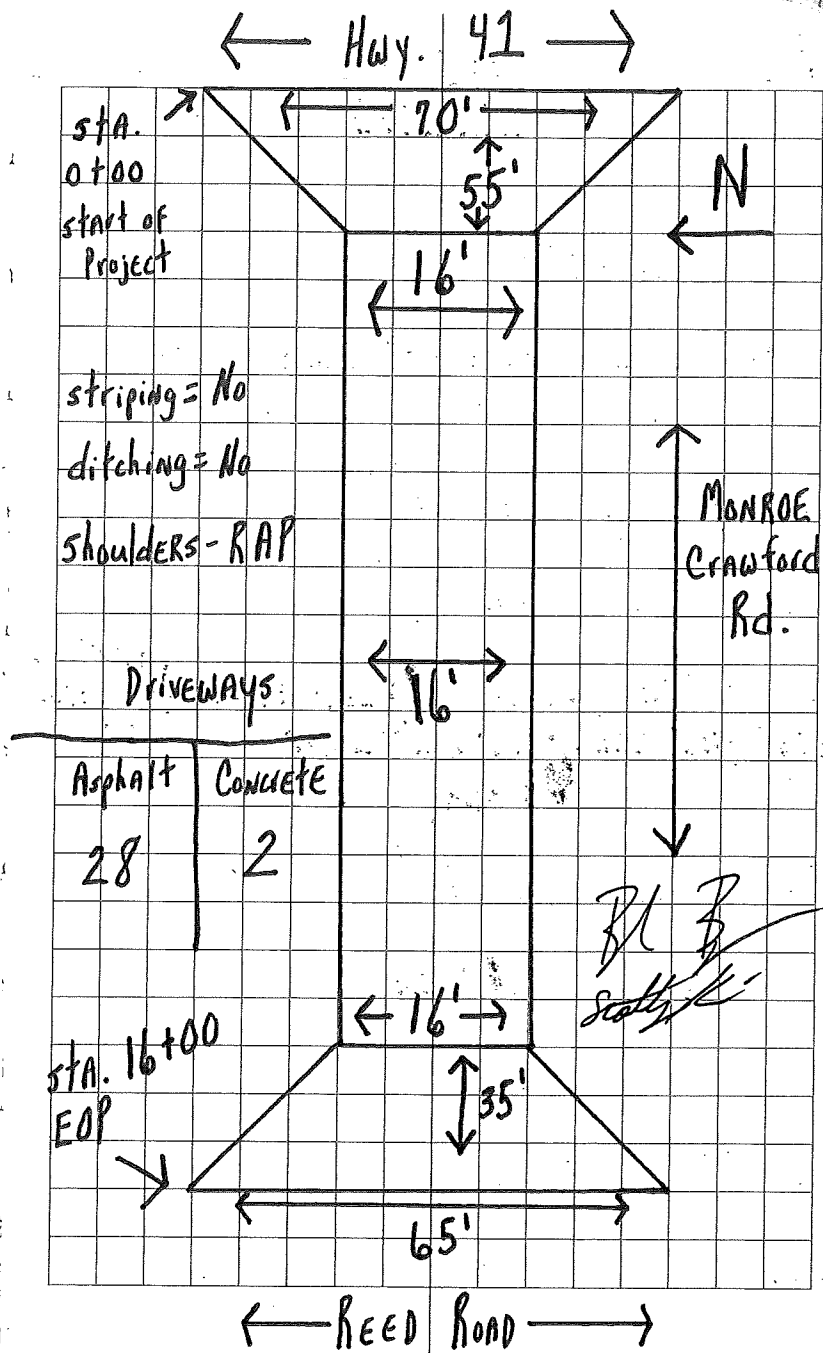 Hwy. 41
stA.
0+00
stArt of
Project
70'
55'
N
16'
striping = No
ditching = No
shouldERS - RAP
MONROE
CrAwford
Rd.
16'
DrivEWAYS
Asphalt
CONCrEtE
28
2
16'
stA. 16+00
EOP
35'
65'
REED ROAD